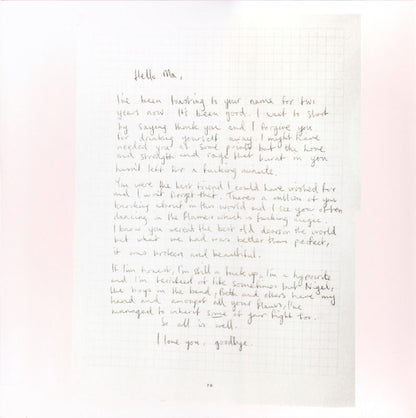 Hello Ma,
I've been toasting to your name for two
years now. It's been good. I want to start
by saying thank you and I forgive you
for drinking yourself away. I might have
needed you at some points but the love
and strength and rage that burnt in you
hasn't left for a fucking minute.
You were the best friend I could have wished for
and I won't forget that. There's a million of you
barking about in this world and I see you often
dancing in the flames which is fucking nice.
I know you weren't the best old dear in the world
but what we had was better than perfect,
it was broken and beautiful.
If I'm honest, I'm still a fuck up, I'm a hypocrite
and I'm terrified of life sometimes but Nigel,
the boys in the band, Beth and others have my
hand and amongst all your flaws, I've
managed to inherit some of your fight too.
So all is well.
I love you, goodbye.